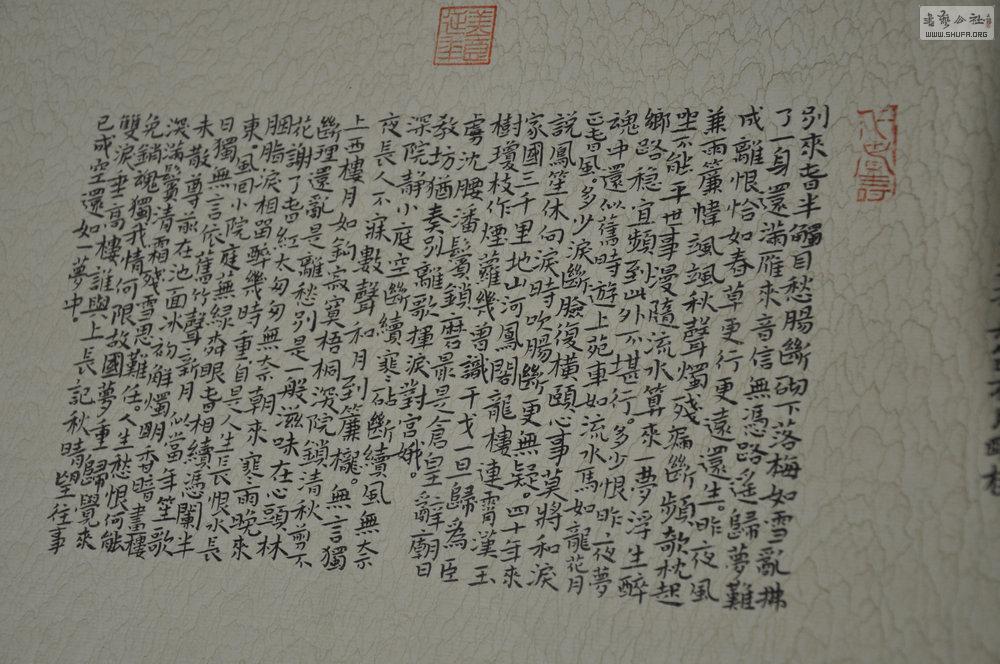 別來春半觸目愁腸斷砌下落梅如雪亂拂
了一身還滿雁來音信無憑路遙歸夢難
成離恨恰如春草更行更遠還生。昨夜風
兼雨簾幃颯颯秋聲燭殘漏斷頻欹枕起
坐不能平世事慢隨流水算來一夢浮生醉
鄉路穩宜頻到此外不堪行。多少恨昨夜夢
魂中還似舊時遊上苑車如流水馬如龍花月
正春風。多少淚斷臉復橫頤心事莫將和淚
說鳳笙休向淚時吹腸斷更無疑。四十年來
家國三千里地山河鳳閣龍樓連霄漢玉
樹瓊枝作煙蘿幾曾識干戈一旦歸為臣
虜沈腰潘鬢銷磨最是倉皇辭廟日
教坊猶奏別離歌揮淚對宮娥。
深院靜小庭空斷續寒砧斷續風無奈
夜長人不寐數聲和月到簾櫳。無言獨
上西樓月如鉤寂寞梧桐深院鎖清秋剪不
斷理還亂是離愁別是一般滋味在心頭林
花謝了春紅太匆匆無奈朝來寒雨晚來
胭脂淚相留醉幾時重自是人生長恨水長
東。風回小院庭蕪綠眼春相續憑闌半
日獨無言依舊竹聲新月似當年笙歌
未散尊前在池面冰初解燭明香暗畫樓
深滿鬢清霜殘雪思難任。人生愁恨何能
免銷魂獨我情何限故國夢重歸覺來
雙淚垂高樓誰與上長記秋晴望往事
已成空還如一夢中。
美意延年
WWW.SHUFA.ORG